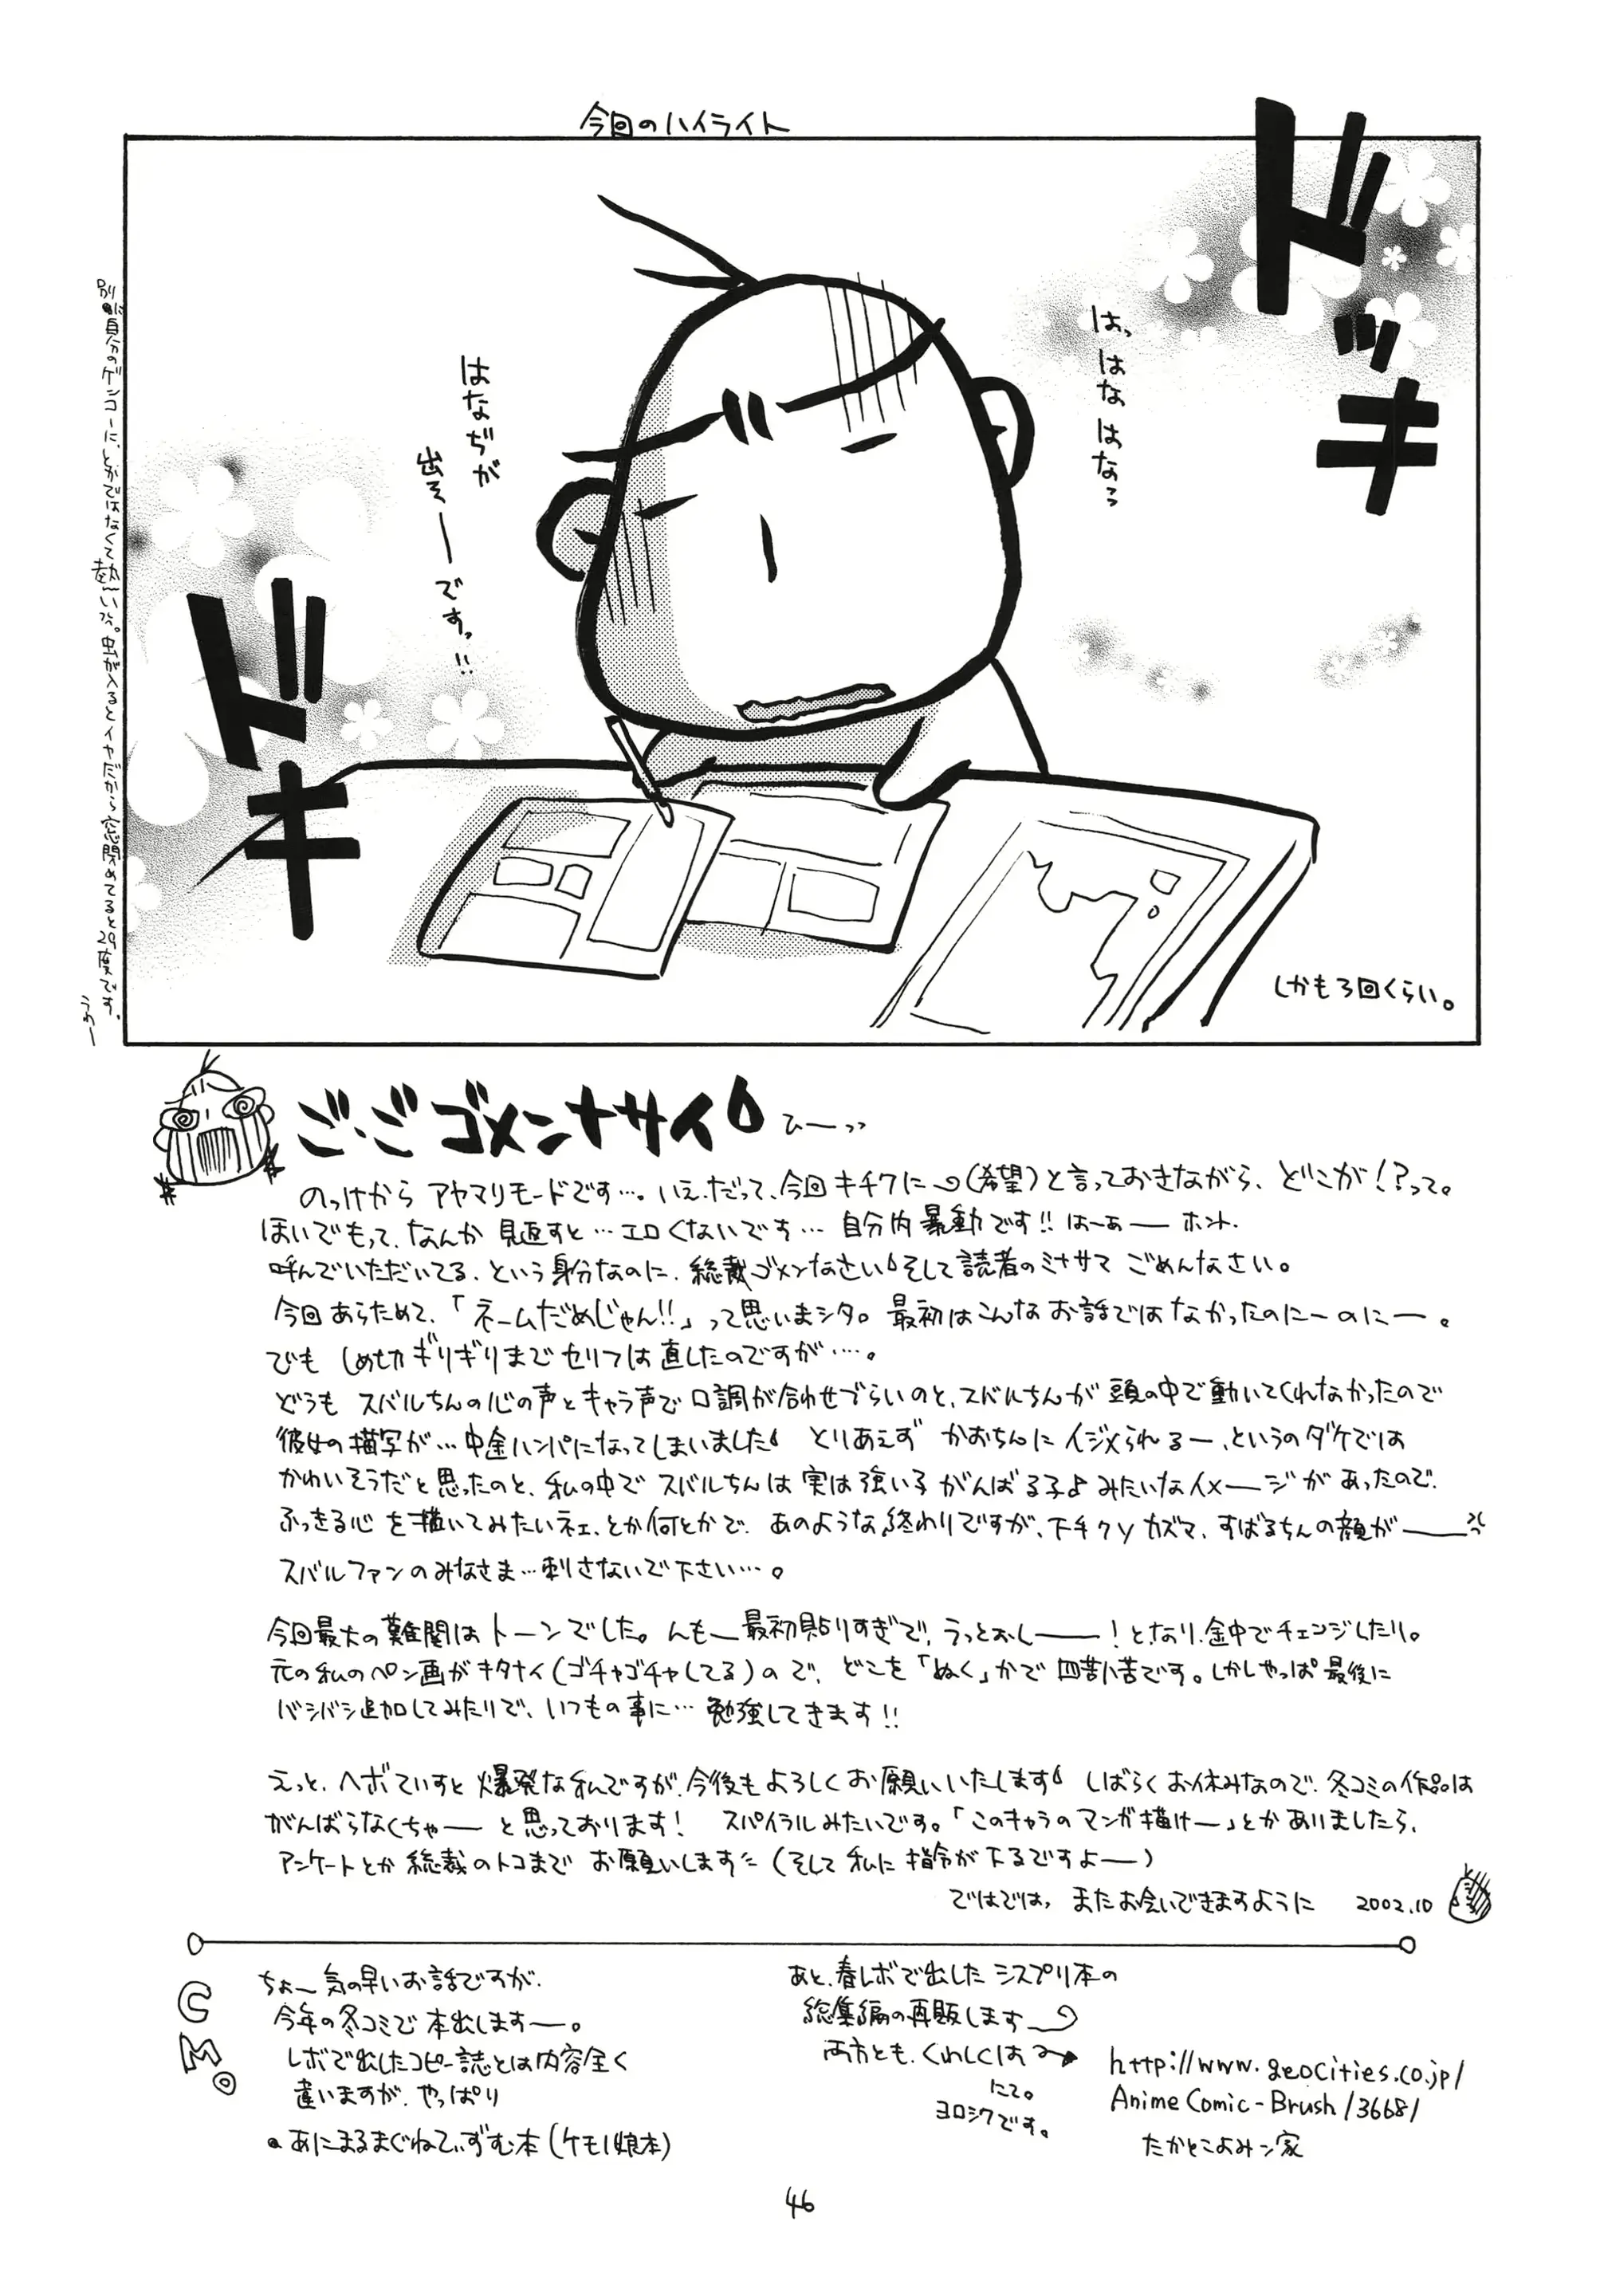 今回のハイライト
ドドッキ
はっ はなはなぢ
はなぢが
出そーですっ!!
ドキ
しかも3回くらい。
別に自分のゲンコーに、とかではなくて熱〜い
虫が入るとイヤだから窓閉めてると29度です。
ご・ご ゴメンナサイ
ひーっっ
のっけから アヤマリモードです…。いえ、だって、今回キチクに(希望)と言っておきながら、どこが!?って。
ほいでもって、なんか 見返すと…エロくないです… 自分内暴動です!! はーぁー ホント.
呼んでいただいてる、という身分なのに、総裁ゴメンなさい そして読者のミナサマ ごめんなさい。
今回あらためて、「ネームだめじゃん!!」って思いまシタ。最初はこんなお話ではなかったのにーのにー。
でも しめ切ギリギリまでセリフは直したのですが…。
どうも スバルちんの心の声とキャラ声で口調が合わせづらいのと、スバルちんが 頭の中で動いてくれなかったので
彼女の描写が…中途ハンパになってしまいました とりあえず かおちんに イジメられるー、というのダケでは
かわいそうだと思ったのと、私の中で スバルちんは 実は強い子 がんばる子♪みたいなイメージがあったので、
ふっきる心 を描いてみたいネェ、とか何とかで、あのような終わりですが、下チクソ カズマ、すばるちんの顔がーー
スバルファンのみなさま…刺さないで下さい…。
今回最大の難関はトーンでした。んもー最初貼りすぎで、うっとおしーー!となり、途中でチェンジしたり。
元の私のペン画がキタナイ(ゴチャゴチャしてる)ので、どこを「ぬく」かで 四苦八苦です。しかしやっぱ最後に
バシバシ追加してみたりで、いつもの事に… 勉強してきます!!
えっと、ヘボていすと 爆発な私ですが、今後もよろしくお願いいたします しばらくお休みなので、冬コミの作品は
がんばらなくちゃー と思っております! スパイラルみたいです。「このキャラのマンガ描けー」とかありましたら、
アンケートとか 総裁のトコまで お願いします (そして私に指令が下るですよー)
ではでは、またお会いできますように 2002.10
CM。
ちょー気の早いお話ですが、
今年の冬コミで 本出しますー。
レボで出したコピー誌とは内容全く
違いますが、やっぱり
あにまるまぐねてぃずむ本(ケモノ娘本)
あと、春レボで出した シスプリ本の
総集編の再販します
両方とも、くわしくは
にて。
ヨロシクです。
http://www.geocities.co.jp/
AnimeComic-Brush/3668/
たかとこよみン家
46